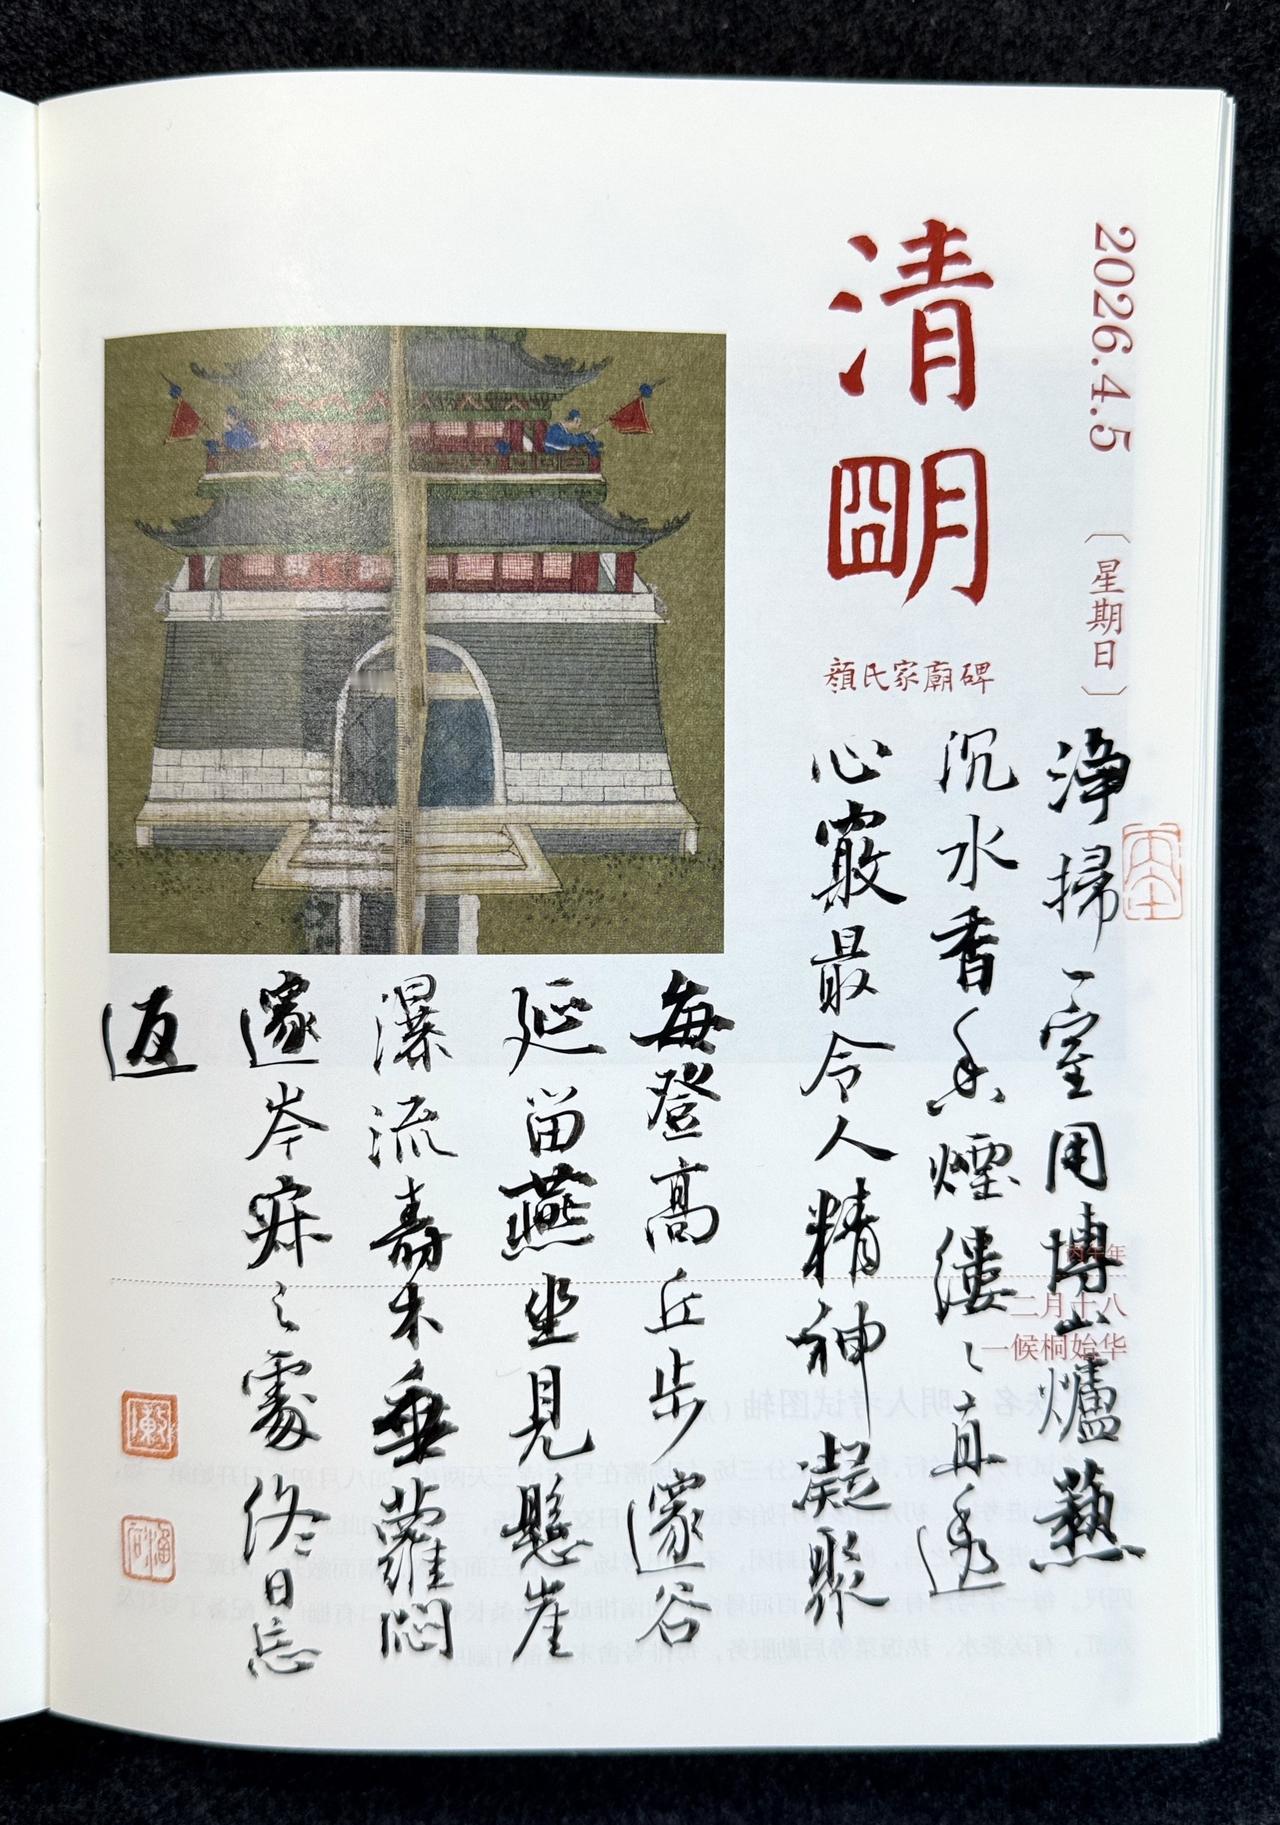 2026.4.5
〔星期日〕
清朙
顏氏家廟碑
丙午年
二月十八
一候桐始华
淨掃一室用博山爐爇
沉水香香煙縷〻直透
心竅最令人精神凝聚
每登高丘步邃谷
延留燕坐見懸崖
瀑流壽木垂蘿閟
邃岑寂之處終日忘
返